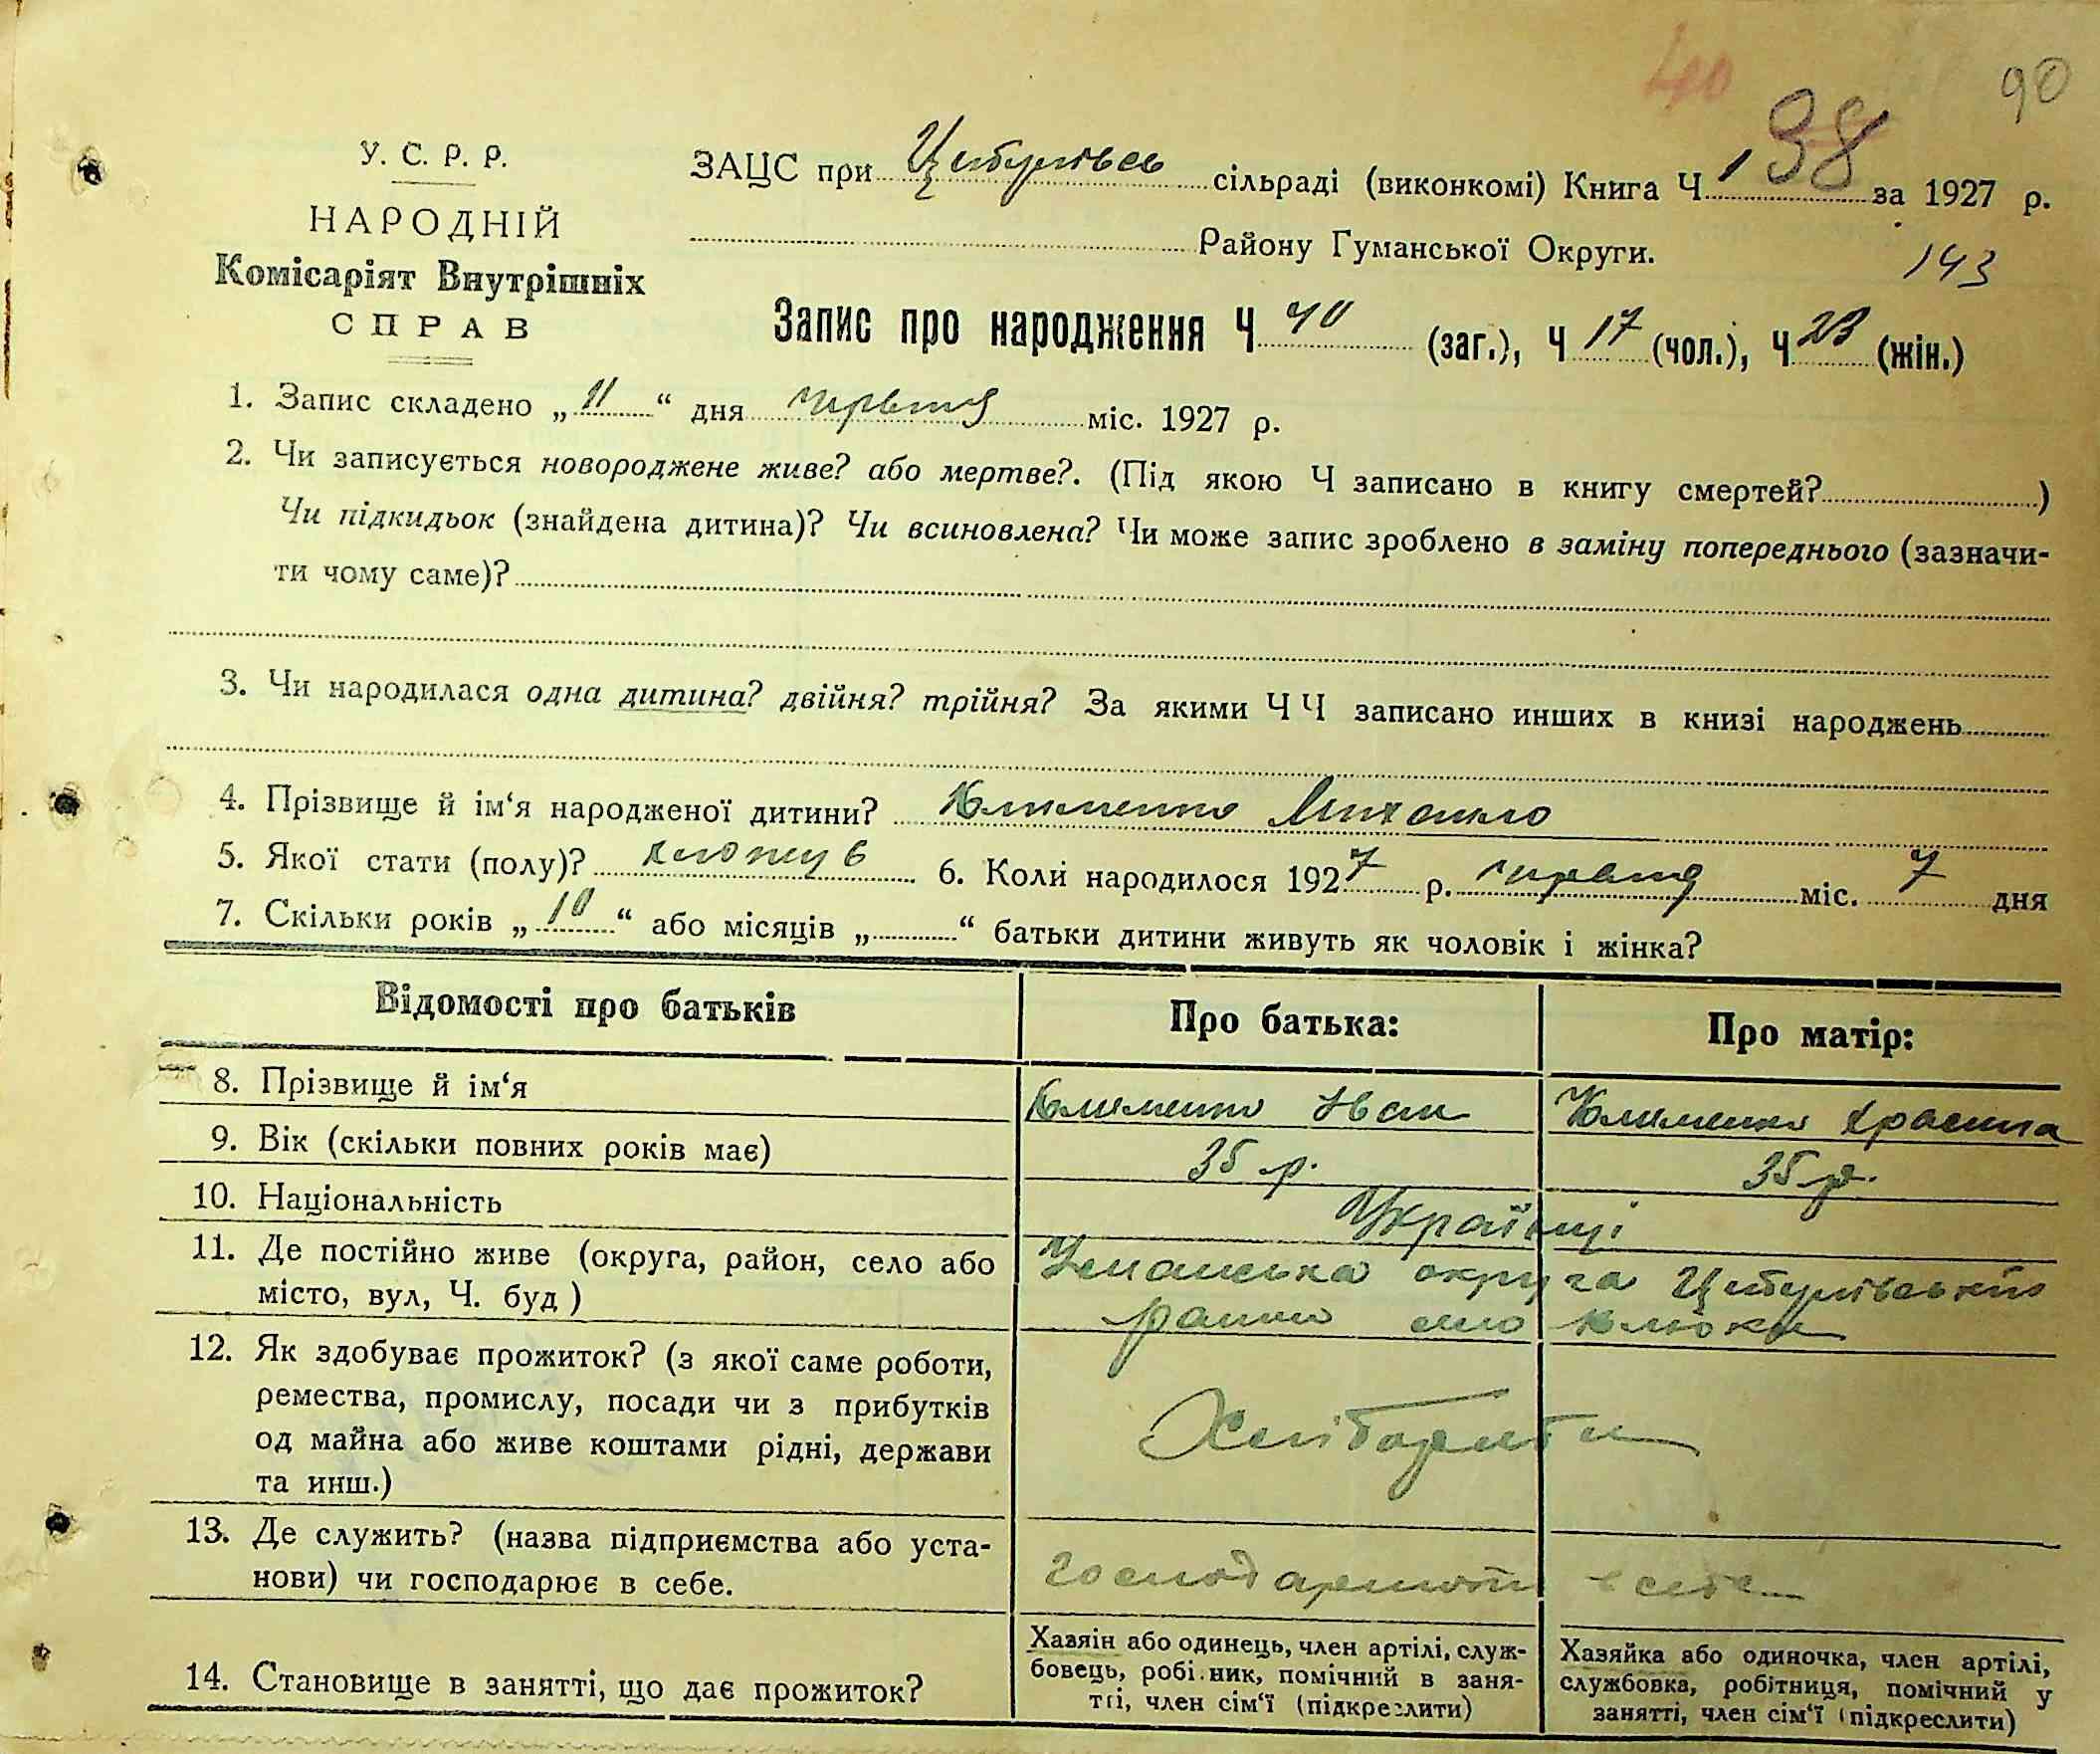 40
90
У. С. Р. Р.
НАРОДНІЙ
Комісаріят Внутрішніх
СПРАВ
ЗАЦС при Цибулівсь сільраді (виконкомі) Книга Ч 1 38 за 1927 р.
Району Гуманської Округи.
143
Запис про народження Ч 40 (заг.), Ч 17 (чол.), Ч 23 (жін.)
1. Запис складено „ 11 “ дня червня міс. 1927 р.
2. Чи записується новороджене живе? або мертве?. (Під якою Ч записано в книгу смертей? )
Чи підкидьок (знайдена дитина)? Чи всиновлена? Чи може запис зроблено в заміну попереднього (зазначи-
ти чому саме)?
3. Чи народилася одна дитина? двійня? трійня? За якими ЧЧ записано инших в книзі народжень
4. Прізвище й ім‘я народженої дитини? Клименко Михайло
5. Якої стати (полу)? 6. Коли народилося 1927 р. червня міс. 7 дня
7. Скільки років „ 10 “ або місяців „ “ батьки дитини живуть як чоловік і жінка?
Відомості про батьків Про батька: Про матір:
8. Прізвище й ім‘я Клименко Іван Клименко
9. Вік (скільки повних років має) 35 р. 35 р.
10. Національність Українці
11. Де постійно живе (округа, район, село або
місто, вул, Ч. буд ) Уманська округа Цибулівський
район село Клюки
12. Як здобуває прожиток? (з якої саме роботи,
ремества, промислу, посади чи з прибутків
од майна або живе коштами рідні, держави
та инш.) Хлібороби
13. Де служить? (назва підприємства або уста-
нови) чи господарює в себе. в себе
14. Становище в занятті, що дає прожиток?
Хазяін або одинець, член артілі, служ-
бовець, робі.ник, помічний в заня-
тті, член сім‘ї (підкреслити)
Хазяйка або одиночка, член артілі,
службовка, робітниця, помічний у
занятті, член сім‘ї (підкреслити)